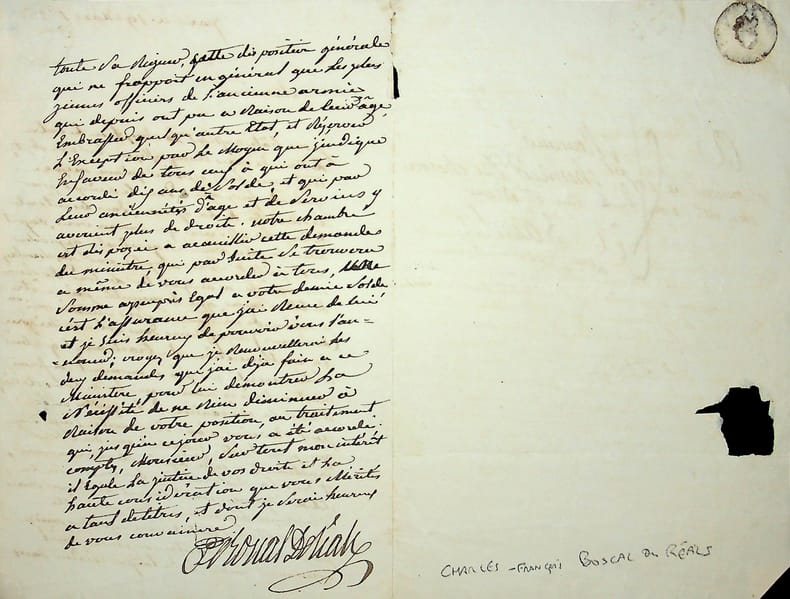 toute Sa Rigueur, cette disposition générale
qui ne frappoit en général que Les plus
jeunes officiers de L'ancienne armée
qui depuis ont pu a Raison de leur age
Embrasser quelqu'autre Etat, et Réserver
L'Exception par Le Moyen que j'indique
En faveur de tous ceux à qui on a
accordé dix ans de Solde, et qui par
Leur ancienneté d'age et de Services y
avoient plus de droits. notre chambre
est disposée a accueillir cette demande
du ministre, qui par Suite Se trouvera
a même de vous accorder à tous, une
Somme apeuprès Egal a votre demie Solde
c'est L'assurance que j'ai Reçue de lui
et je Suis heureux de pouvoir vous l'an-
-noncer; croyez que je Renouvellerai les
deux demandes que j'ai déja fait a ce
Ministre, pour lui démontrer La
Nécéssité de ne Rien diminuer à
Raison de votre position, au traitement
qui, jusqu'à ce jour vous a été accordé.
comptez, Monsieur, Sur tout mon intérêt
il Egale La justice de vos droits et La
haute considération que vous Mérités
a tant de titres, et dont je Serai heureux
de vous convaincre
CHARLES - FRANÇOIS BOSCAL DE RÉALS